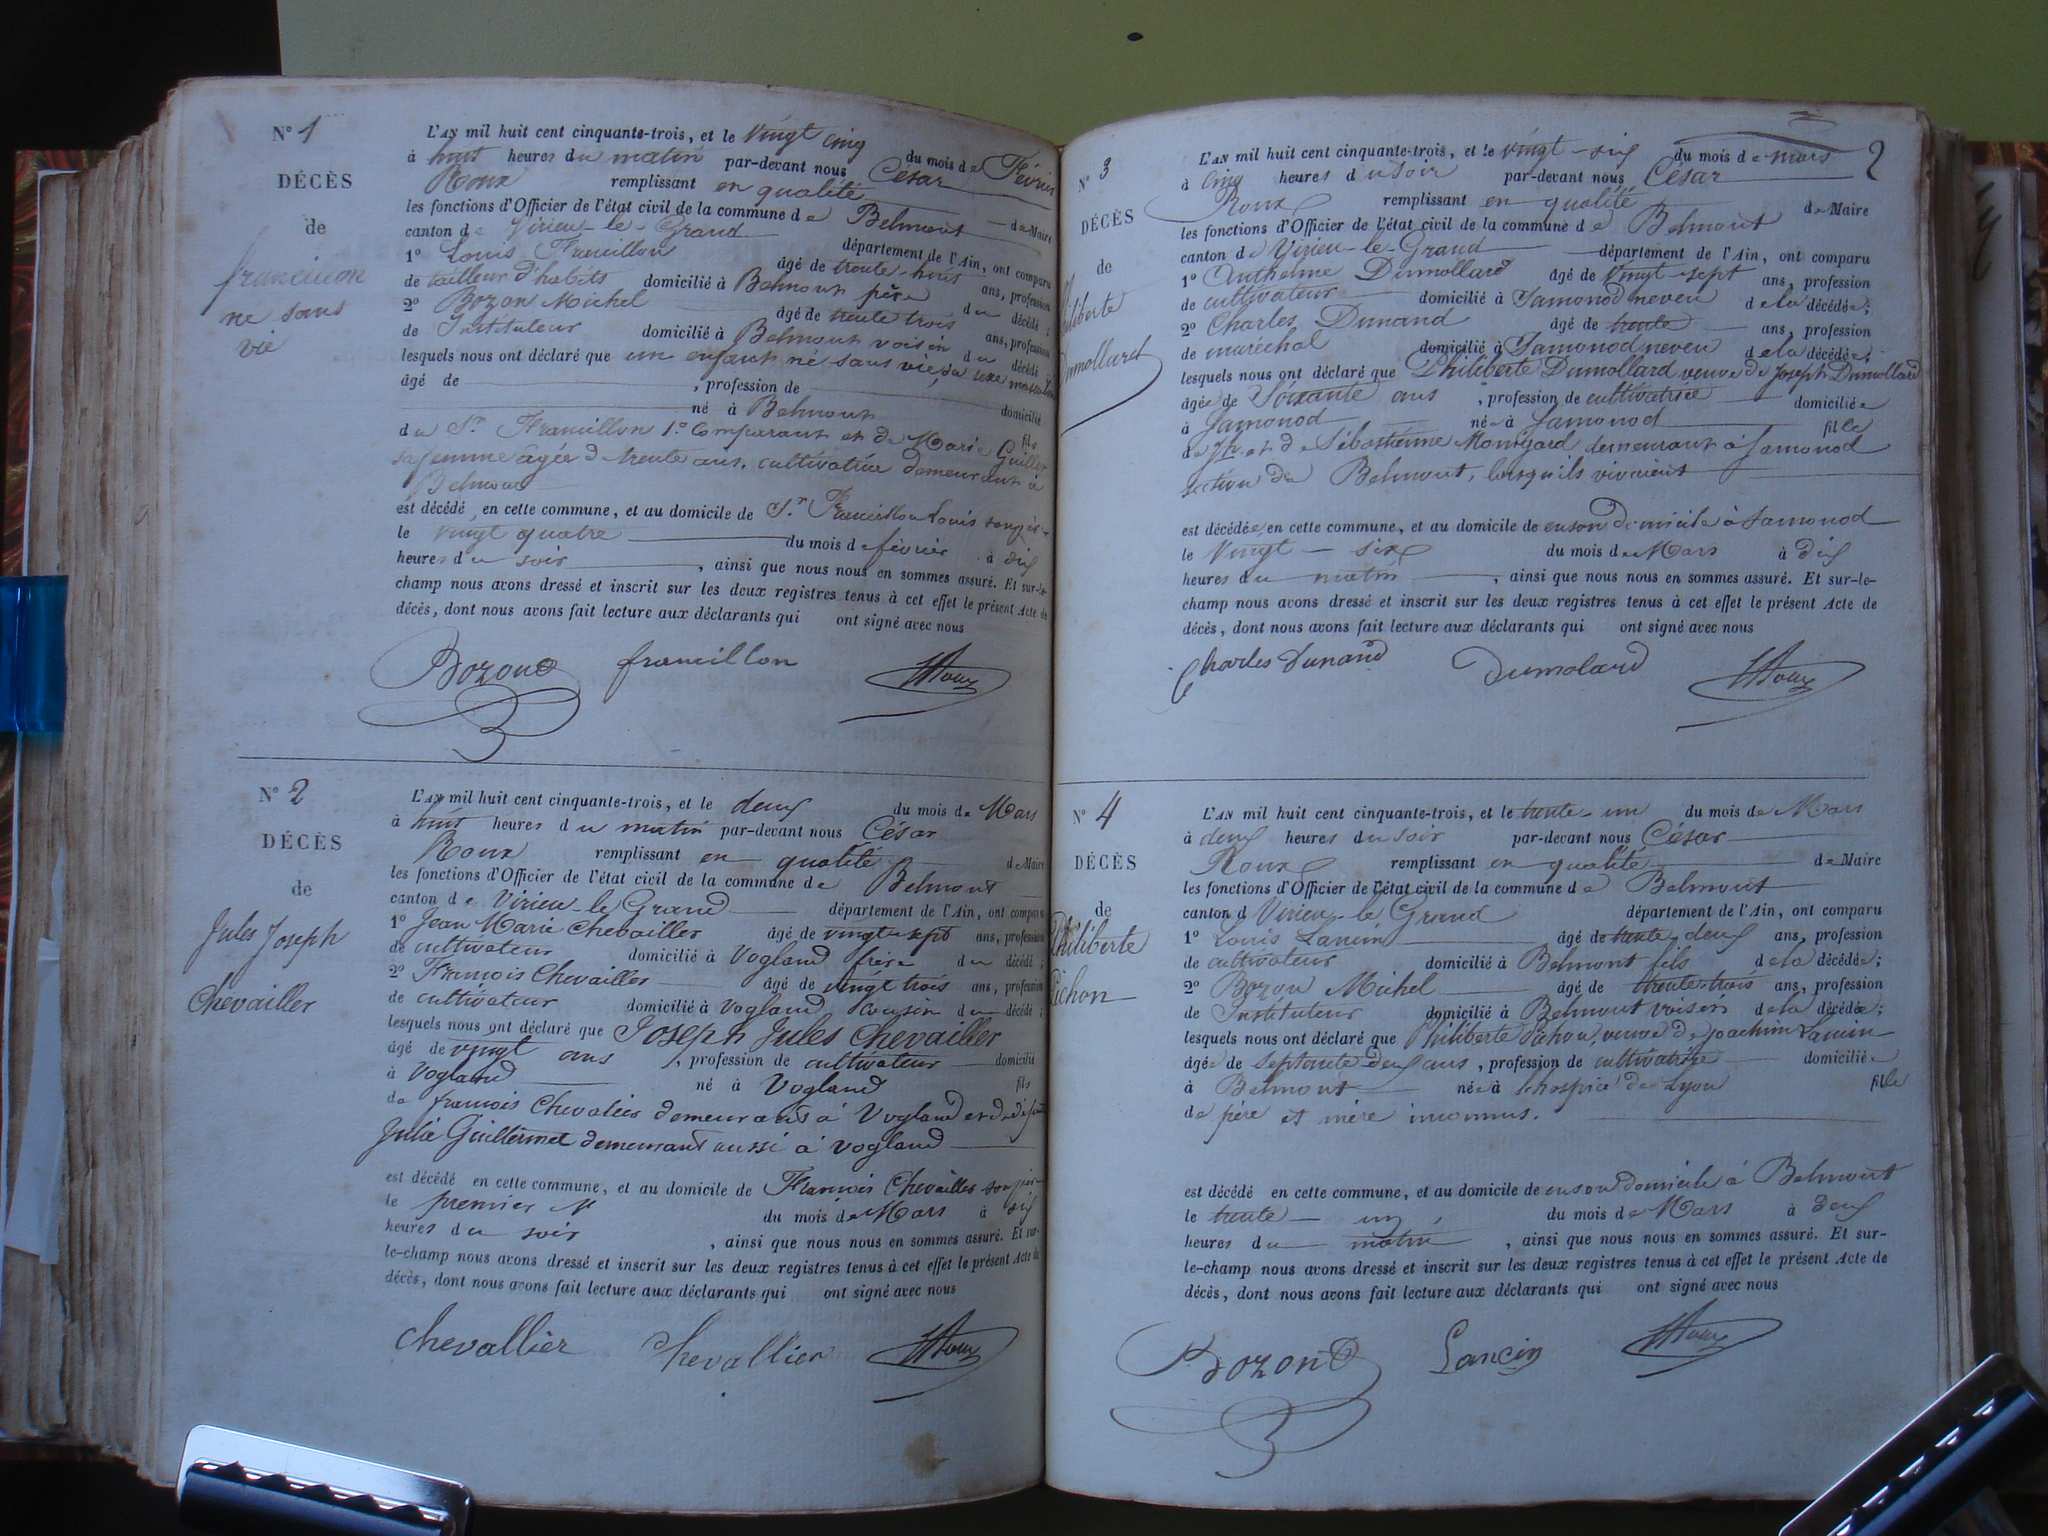 N° 1
DÉCÈS
de
francillon
né sans
vie
L'AN mil huit cent cinquante-trois, et le vingt cinq du mois de Février
à huit heures du matin par-devant nous César
Roux remplissant en qualité de Maire
les fonctions d'Officier de l'état civil de la commune de Belmont
canton de Virieu-le-Grand département de l'Ain, ont comparu
1° Louis Francillon âgé de trente-huit ans, profession
de tailleur d'habits domicilié à Belmont père du décédé;
2° Bozon Michel âgé de trente trois ans, profession
de Instituteur domicilié à Belmont voisin du décédé
lesquels nous ont déclaré que un enfant né sans vie, du sexe
âgé de , profession de domicilié
né à Belmont fils
du Sr Francillon 1° Comparant et de Marie Guillet
sa femme agée de trente ans, cultivatrice demeurant à
Belmont
est décédé en cette commune, et au domicile de Sr Francillon Louis son père
le vingt quatre du mois de février à dix
heures du soir , ainsi que nous nous en sommes assuré. Et sur-le-
champ nous avons dressé et inscrit sur les deux registres tenus à cet effet le présent Acte de
décès, dont nous avons fait lecture aux déclarants qui ont signé avec nous
Bozon francillon Roux
N° 2
DÉCÈS
de
Jules Joseph
Chevailler
L'AN mil huit cent cinquante-trois, et le deux du mois de Mars
à huit heures du matin par-devant nous César
Roux remplissant en qualité de Maire
les fonctions d'Officier de l'état civil de la commune de Belmont
canton de Virieu-le-Grand département de l'Ain, ont comparu
1° Jean Marie Chevailler âgé de vingt-sept ans, profession
de cultivateur domicilié à Vogland frère du décédé;
2° François Chevailler âgé de vingt trois ans, profession
de cultivateur domicilié à Vogland Cousin du décédé;
lesquels nous ont déclaré que Joseph Jules Chevailler
âgé de vingt ans , profession de cultivateur domicilié
à Vogland né à Vogland fils
de françois Chevalier demeurant à Vogland et de défunte
Julie Guillermet demeurant aussi à Vogland
est décédé en cette commune, et au domicile de François Chevailler son père
le premier du mois de Mars à dix
heures du soir , ainsi que nous nous en sommes assuré. Et sur-
le-champ nous avons dressé et inscrit sur les deux registres tenus à cet effet le présent Acte de
décès, dont nous avons fait lecture aux déclarants qui ont signé avec nous
chevallier chevallier Roux
2
N° 3
DÉCÈS
de
Philiberte
Dumollard
L'AN mil huit cent cinquante-trois, et le vingt-six du mois de mars
à cinq heures du soir par-devant nous César
Roux remplissant en qualité de Maire
les fonctions d'Officier de l'état civil de la commune de Belmont
canton de Virieu-le-Grand département de l'Ain, ont comparu
1° Anthelme Dumollard âgé de vingt-sept ans, profession
de cultivateur domicilié à Samonod neveu de la décédée;
2° Charles Dunand âgé de trente ans, profession
de maréchal domicilié à Samonod neveu de la décédée;
lesquels nous ont déclaré que Philiberte Dumollard veuve de Joseph Dumollard
âgée de Soixante ans , profession de cultivatrice domiciliée
à Samonod née à Samonod fille
de et de Sébastienne demeurant à Samonod
section de Belmont, lorsqu'ils vivaient
est décédée en cette commune, et au domicile de en son domicile à Samonod
le Vingt-six du mois de Mars à dix
heures du matin , ainsi que nous nous en sommes assuré. Et sur-le-
champ nous avons dressé et inscrit sur les deux registres tenus à cet effet le présent Acte de
décès, dont nous avons fait lecture aux déclarants qui ont signé avec nous
Charles Dunand Dumolard Roux
N° 4
DÉCÈS
de
Philiberte
Pichon
L'AN mil huit cent cinquante-trois, et le trente-un du mois de Mars
à deux heures du soir par-devant nous César
Roux remplissant en qualité de Maire
les fonctions d'Officier de l'état civil de la commune de Belmont
canton d Virieu-le-Grand département de l'Ain, ont comparu
1° Louis Lancin âgé de trente deux ans, profession
de cultivateur domicilié à Belmont fils de la décédée;
2° Bozon Michel âgé de trente-trois ans, profession
de Instituteur domicilié à Belmont voisin de la décédée;
lesquels nous ont déclaré que Philiberte Pichon, veuve de Joachim Lancin
âgée de septante deux ans , profession de cultivatrice domiciliée
à Belmont née à l'hospice de Lyon fille
de père et mère inconnus.
est décédé en cette commune, et au domicile de en son domicile à Belmont
le trente-un du mois de Mars à deux
heures du matin , ainsi que nous nous en sommes assuré. Et sur-
le-champ nous avons dressé et inscrit sur les deux registres tenus à cet effet le présent Acte de
décès, dont nous avons fait lecture aux déclarants qui ont signé avec nous
Bozon Lancin Roux